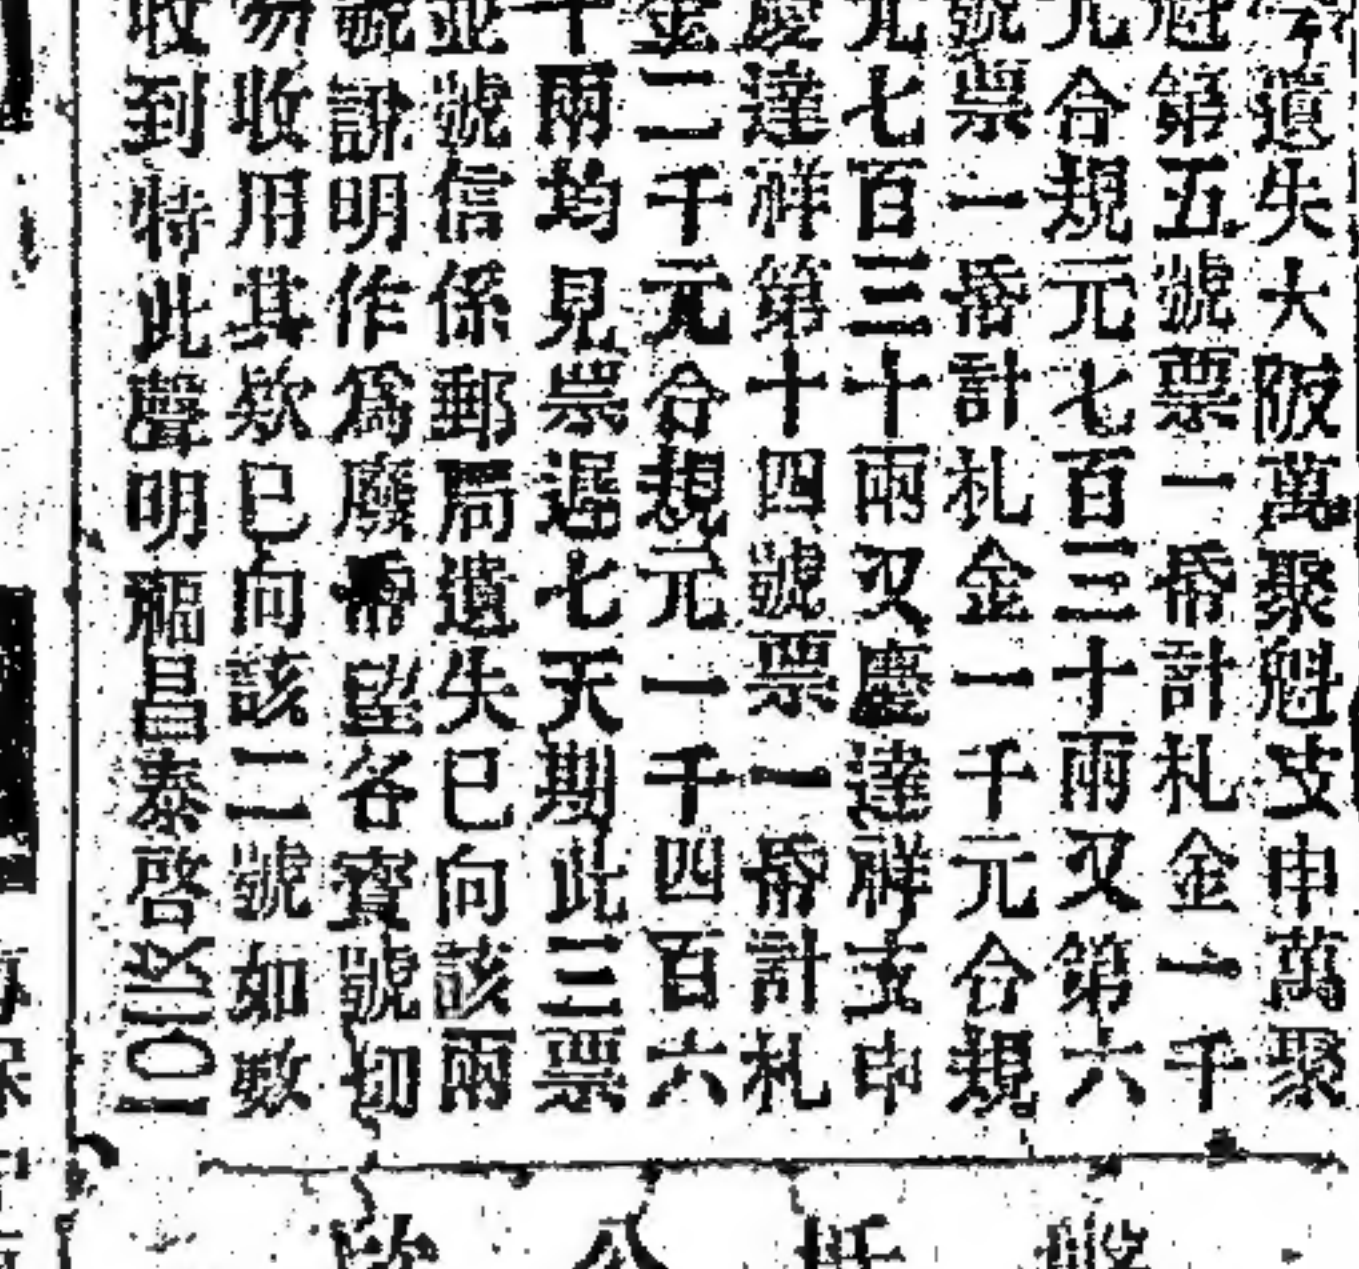 今遺失大阪萬聚魁支申萬聚
魁第五號票一帋計札金一千
元合規元七百三十兩又第六
號票一帋計札金一千元合規
元七百三十兩又慶達祥支申
慶達祥第十四號票一帋計札
金二千元合規元一千四百六
十兩均見票遲七天期此三票
並號信係郵局遺失已向該兩
號說明作爲廢帋望各寶號切
勿收用其欵已向該二號如數
收到特此聲明福昌泰啓
公